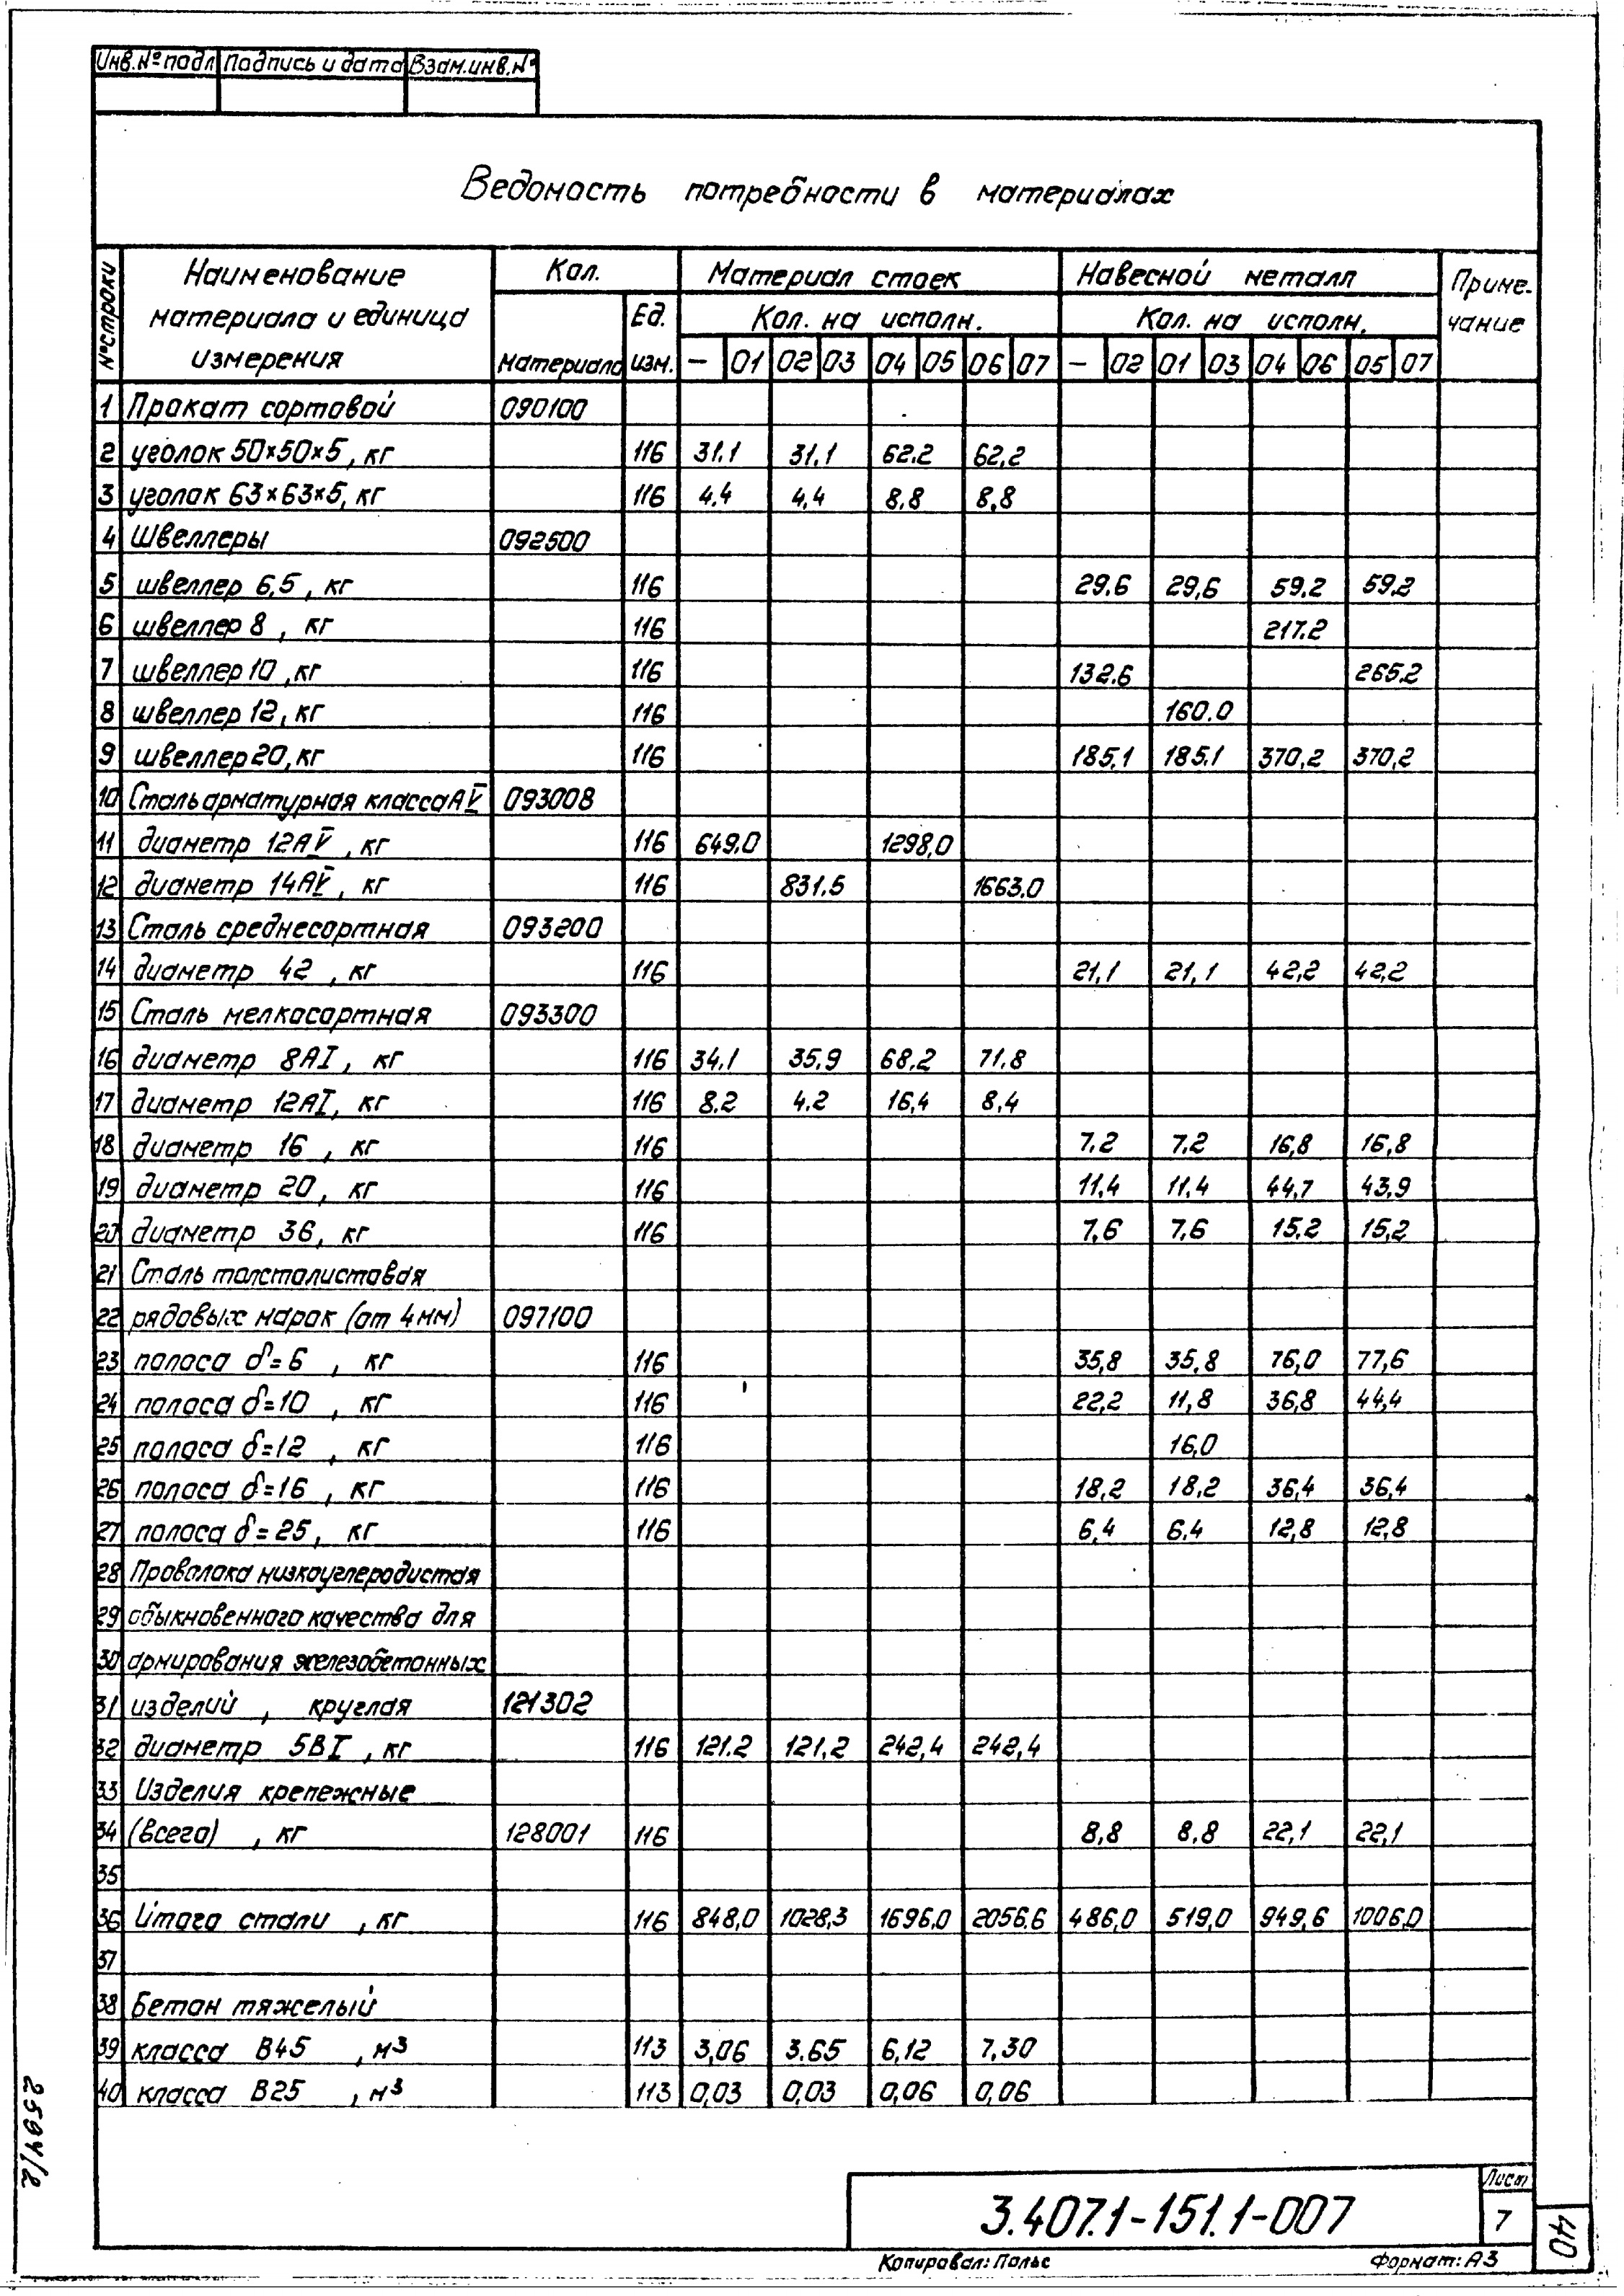 Инв.№ подл Подпись и дата Взам.инв.№
Ведомость потребности в материалах
№ строки Наименование материала и единица измерения Кол. материала Ед. изм. Материал стоек Кол. на исполн. Навесной металл Кол. на исполн. Примечание
— 01 02 03 04 05 06 07 — 02 01 03 04 06 05 07
1 Прокат сортовой 090100
2 уголок 50×50×5, кг 116 31.1 31,1 62.2 62,2
3 уголок 63×63×5, кг 116 4.4 4,4 8.8 8,8
4 Швеллеры 092500
5 швеллер 6,5, кг 116 29.6 29,6 59.2 59.2
6 швеллер 8, кг 116 217.2
7 швеллер 10, кг 116 132.6 265.2
8 швеллер 12, кг 116 160.0
9 швеллер 20, кг 116 185,1 185.1 370,2 370,2
10 Сталь арматурная класса АV 093008
11 диаметр 12АV, кг 116 649.0 1298,0
12 диаметр 14АV, кг 116 831.5 1663.0
13 Сталь среднесортная 093200
14 диаметр 42, кг 116 21,1 21,1 42,2 42,2
15 Сталь мелкосортная 093300
16 диаметр 8АI, кг 116 34.1 35.9 68.2 71.8
17 диаметр 12АI, кг 116 8.2 4.2 16,4 8,4
18 диаметр 16, кг 116 7.2 7.2 16,8 16,8
19 диаметр 20, кг 116 11,4 11,4 44,7 43,9
20 диаметр 36, кг 116 7,6 7,6 15.2 15,2
21 Сталь толстолистовая
22 рядовых марок (от 4мм) 097100
23 полоса δ=6, кг 116 35,8 35,8 76,0 77,6
24 полоса δ=10, кг 116 22,2 11,8 36,8 44,4
25 полоса δ=12, кг 116 16,0
26 полоса δ=16, кг 116 18,2 18.2 36,4 36,4
27 полоса δ=25, кг 116 6,4 6.4 12,8 12,8
28 Проволока низкоуглеродистая
29 обыкновенного качества для
30 армирования железобетонных
31 изделий, круглая 121302
32 диаметр 5ВI, кг 116 121.2 121,2 242,4 242,4
33 Изделия крепежные
34 (всего), кг 128001 116 8,8 8,8 22,1 22,1
35
36 Итого стали, кг 116 848,0 1028,3 1696,0 2056,6 486,0 519,0 949,6 1006,0
37
38 Бетон тяжелый
39 класса В45, м³ 113 3,06 3.65 6,12 7,30
40 класса В25, м³ 113 0,03 0,03 0,06 0,06
25944/2
3.407.1-151.1-007
Лист
7
40
Копировал: Польс
Формат: А3